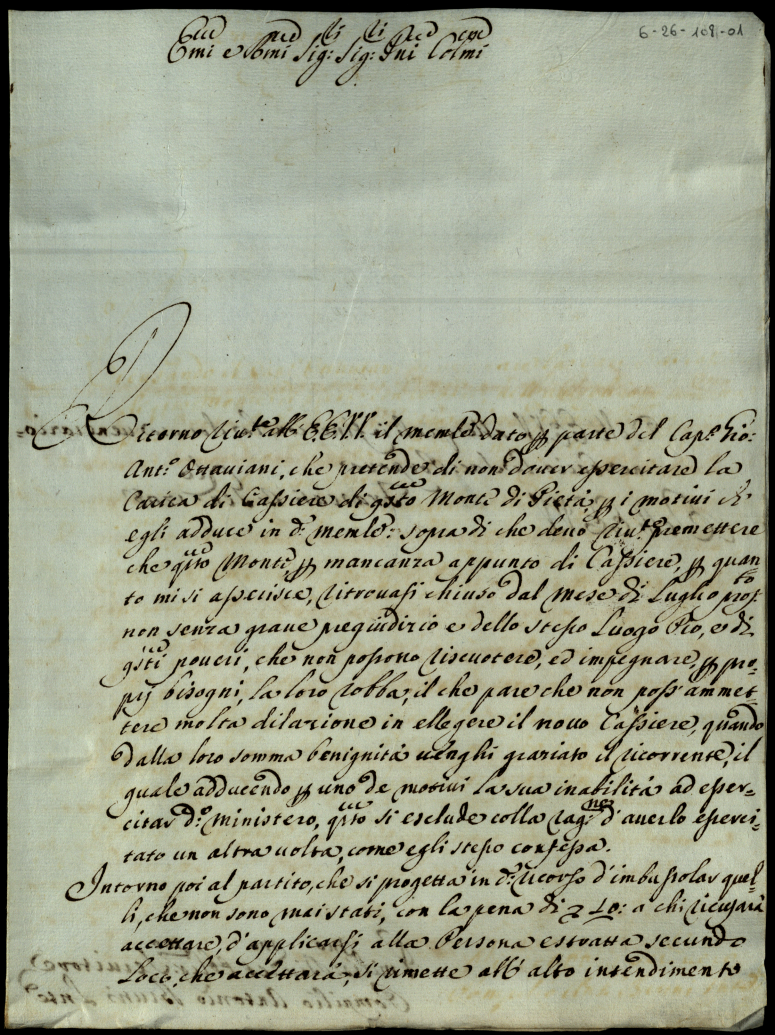 6-26-108-01
Emi e Rmi Sig: Sig: Pni Colmi
Ritorno Riu.te all' EE.VV. il memle dato p parte del Cap.o Gio:
Ant.o Ottaviani, che pretende di non dover essercitare la
Carica di Cassiere di qsto Monte di Pietà, p i motivi ch'
egli adduce in d.o memle: sopra di che devo Riu.te premettere
che qsto Monte, p mancanza appunto di Cassiere, p quan-
to mi si asserisce, ritrovasi chiuso dal mese di Luglio pros.to
non senza grave pregiudizio e dello stesso Luogo Pio, e di
qsti poveri, che non possono riscuotere, ed impegnare, p pro-
pij bisogni, la loro robba; il che pare che non poss'ammet-
tere molta dilazione in elleggere il novo Cassiere, quando
dalla loro somma benignità venghi graziato il ricorrente, il
quale adducendo p uno de motivi la sua inabilità ad esser-
citar d.o ministero, qsto si esclude colla rag.ne d'averlo esserci-
tato un altra volta, come egli stesso confessa.
Intorno poi al partito, che si progetta in d.o ricorso d'imbussolar quel-
li, che non sono mai stati, con la pena di 10: a chi ricuserà
accettare, d'applicarsi alla Persona estratta secundo
Loco, che accettarà, si rimette all' alto intendimento